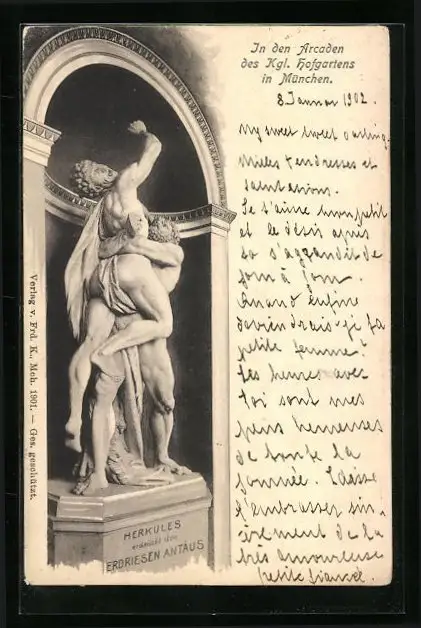 In den Arcaden
des Kgl. Hofgartens
in München.
8 Januar 1902.
My sweet sweet darling,
Milles tendresses et
salutations.
Je t'aime mon petit
et le désir après
toi s'aggrandit de
jour à jour.
Quand enfin
deviendrais-je ta
petite femme?
Les heures avec
toi sont mes
plus heureuses
de toute la
journée. Laisse
t'embrasser sin-
cèrement de ta
très amoureuse
petite fiancée.
Verlag v. Frd. K., Mch. 1901. — Ges. geschützt.
HERKULES
erdrückt den
ERDRIESEN ANTÄUS